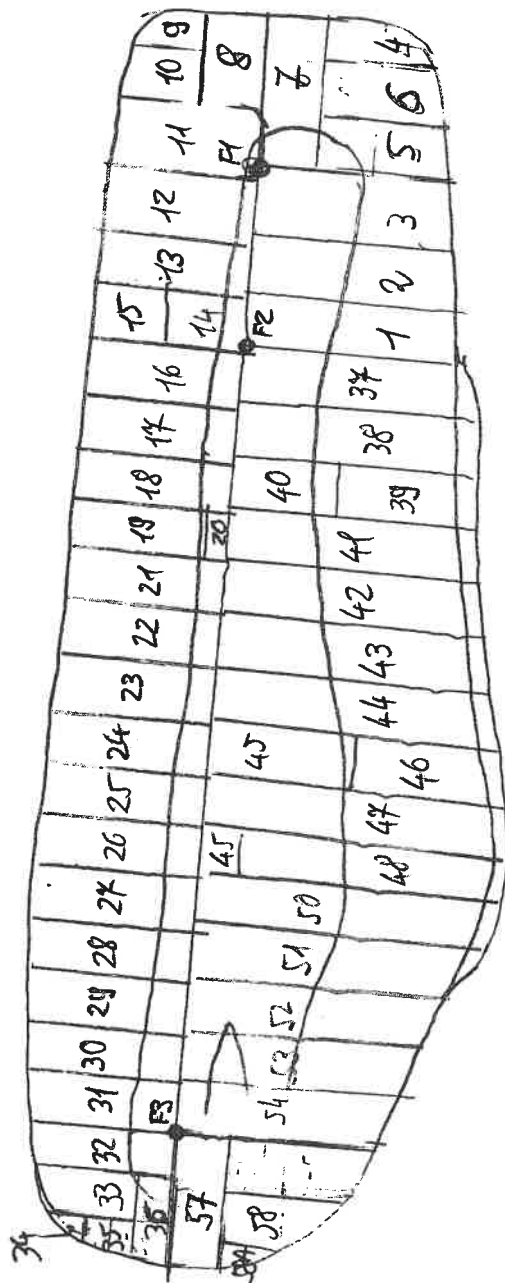 9
10
8
11
7
4
6
5
F1
12
3
13
2
15
14
F2
1
16
37
17
38
18
40
39
19
20
41
21
42
22
43
23
44
24
45
46
25
47
26
45
48
27
50
28
51
29
52
30
53
31
54
F3
32
33
57
58
34
35
36